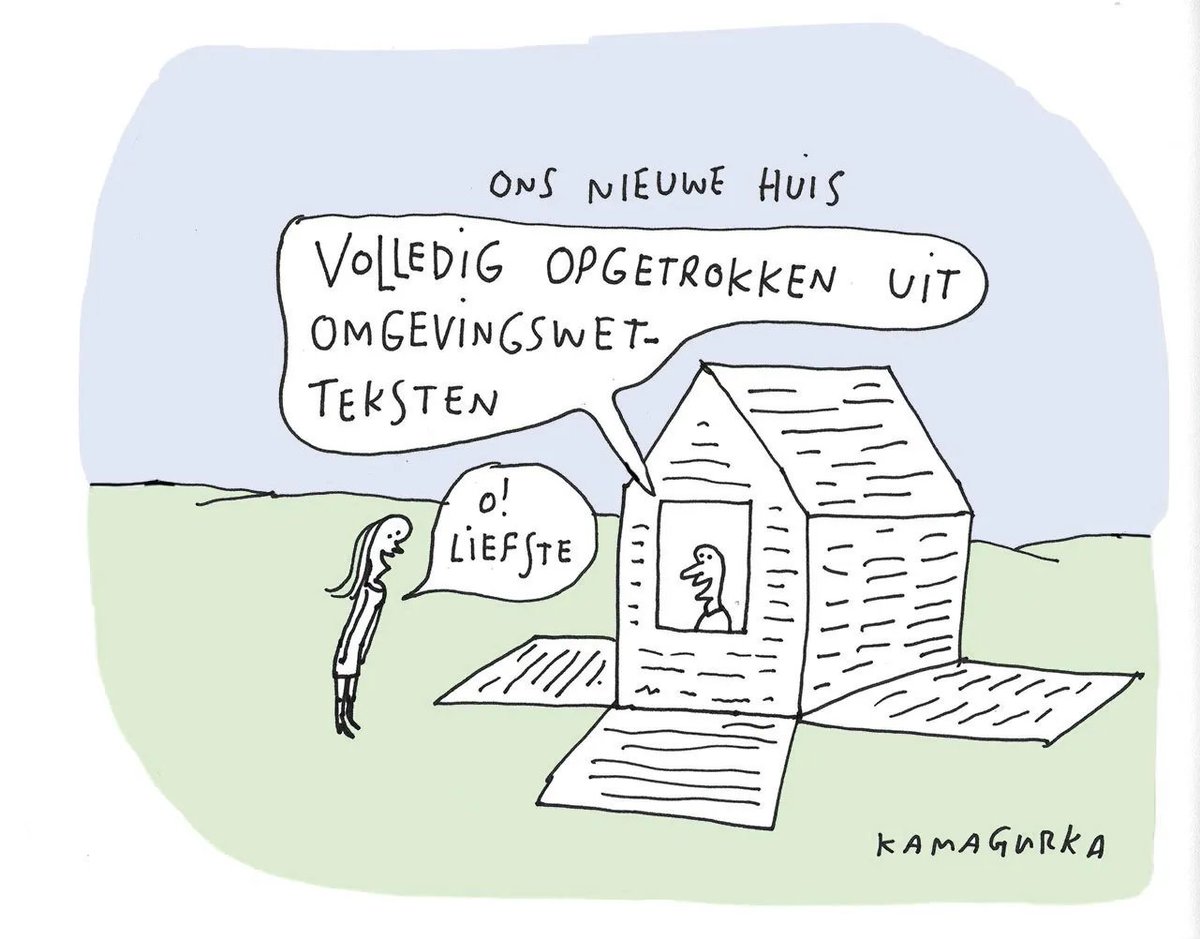 ONS NIEUWE HUIS
VOLLEDIG OPGETROKKEN UIT
OMGEVINGSWET-
TEKSTEN
O!
LIEFSTE
KAMAGURKA